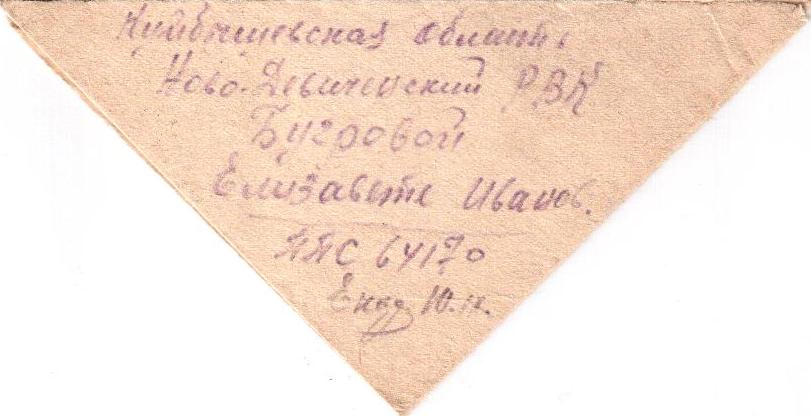 Куйбышевская область
Ново-Девиченский РВК
Бугровой
Елизавете Иванов.
ППС 64170
Ю.И.